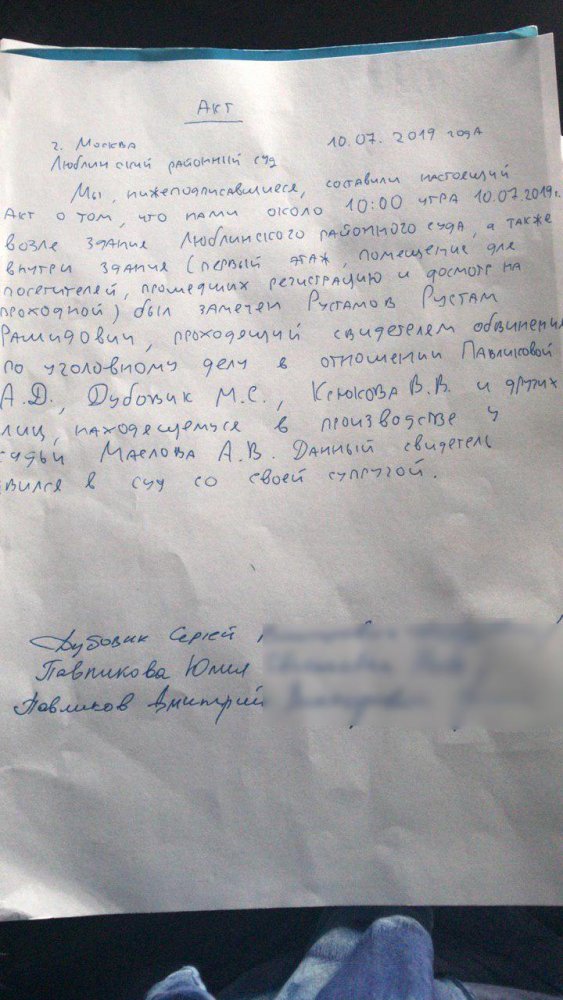 Акт
г. Москва 10.07.2019 года
Люблинский районный суд
Мы, нижеподписавшиеся, составили настоящий
Акт о том, что нами около 10:00 утра 10.07.2019г.
возле здания Люблинского районного суда, а также
внутри здания (первый этаж, помещение для
посетителей, прошедших регистрацию и досмотр на
проходной) был замечен Рустамов Рустам
Рашидович, проходящий свидетелем обвинения
по уголовному делу в отношении Павликовой
А.Д., Дубовик М.С., Крюкова В.В. и других
лиц, находящемуся в производстве у
судьи Маслова А.В. Данный свидетель
явился в суд со своей супругой.
Дубовик Сергей,
Павликова Юлия
Павликов Дмитрий